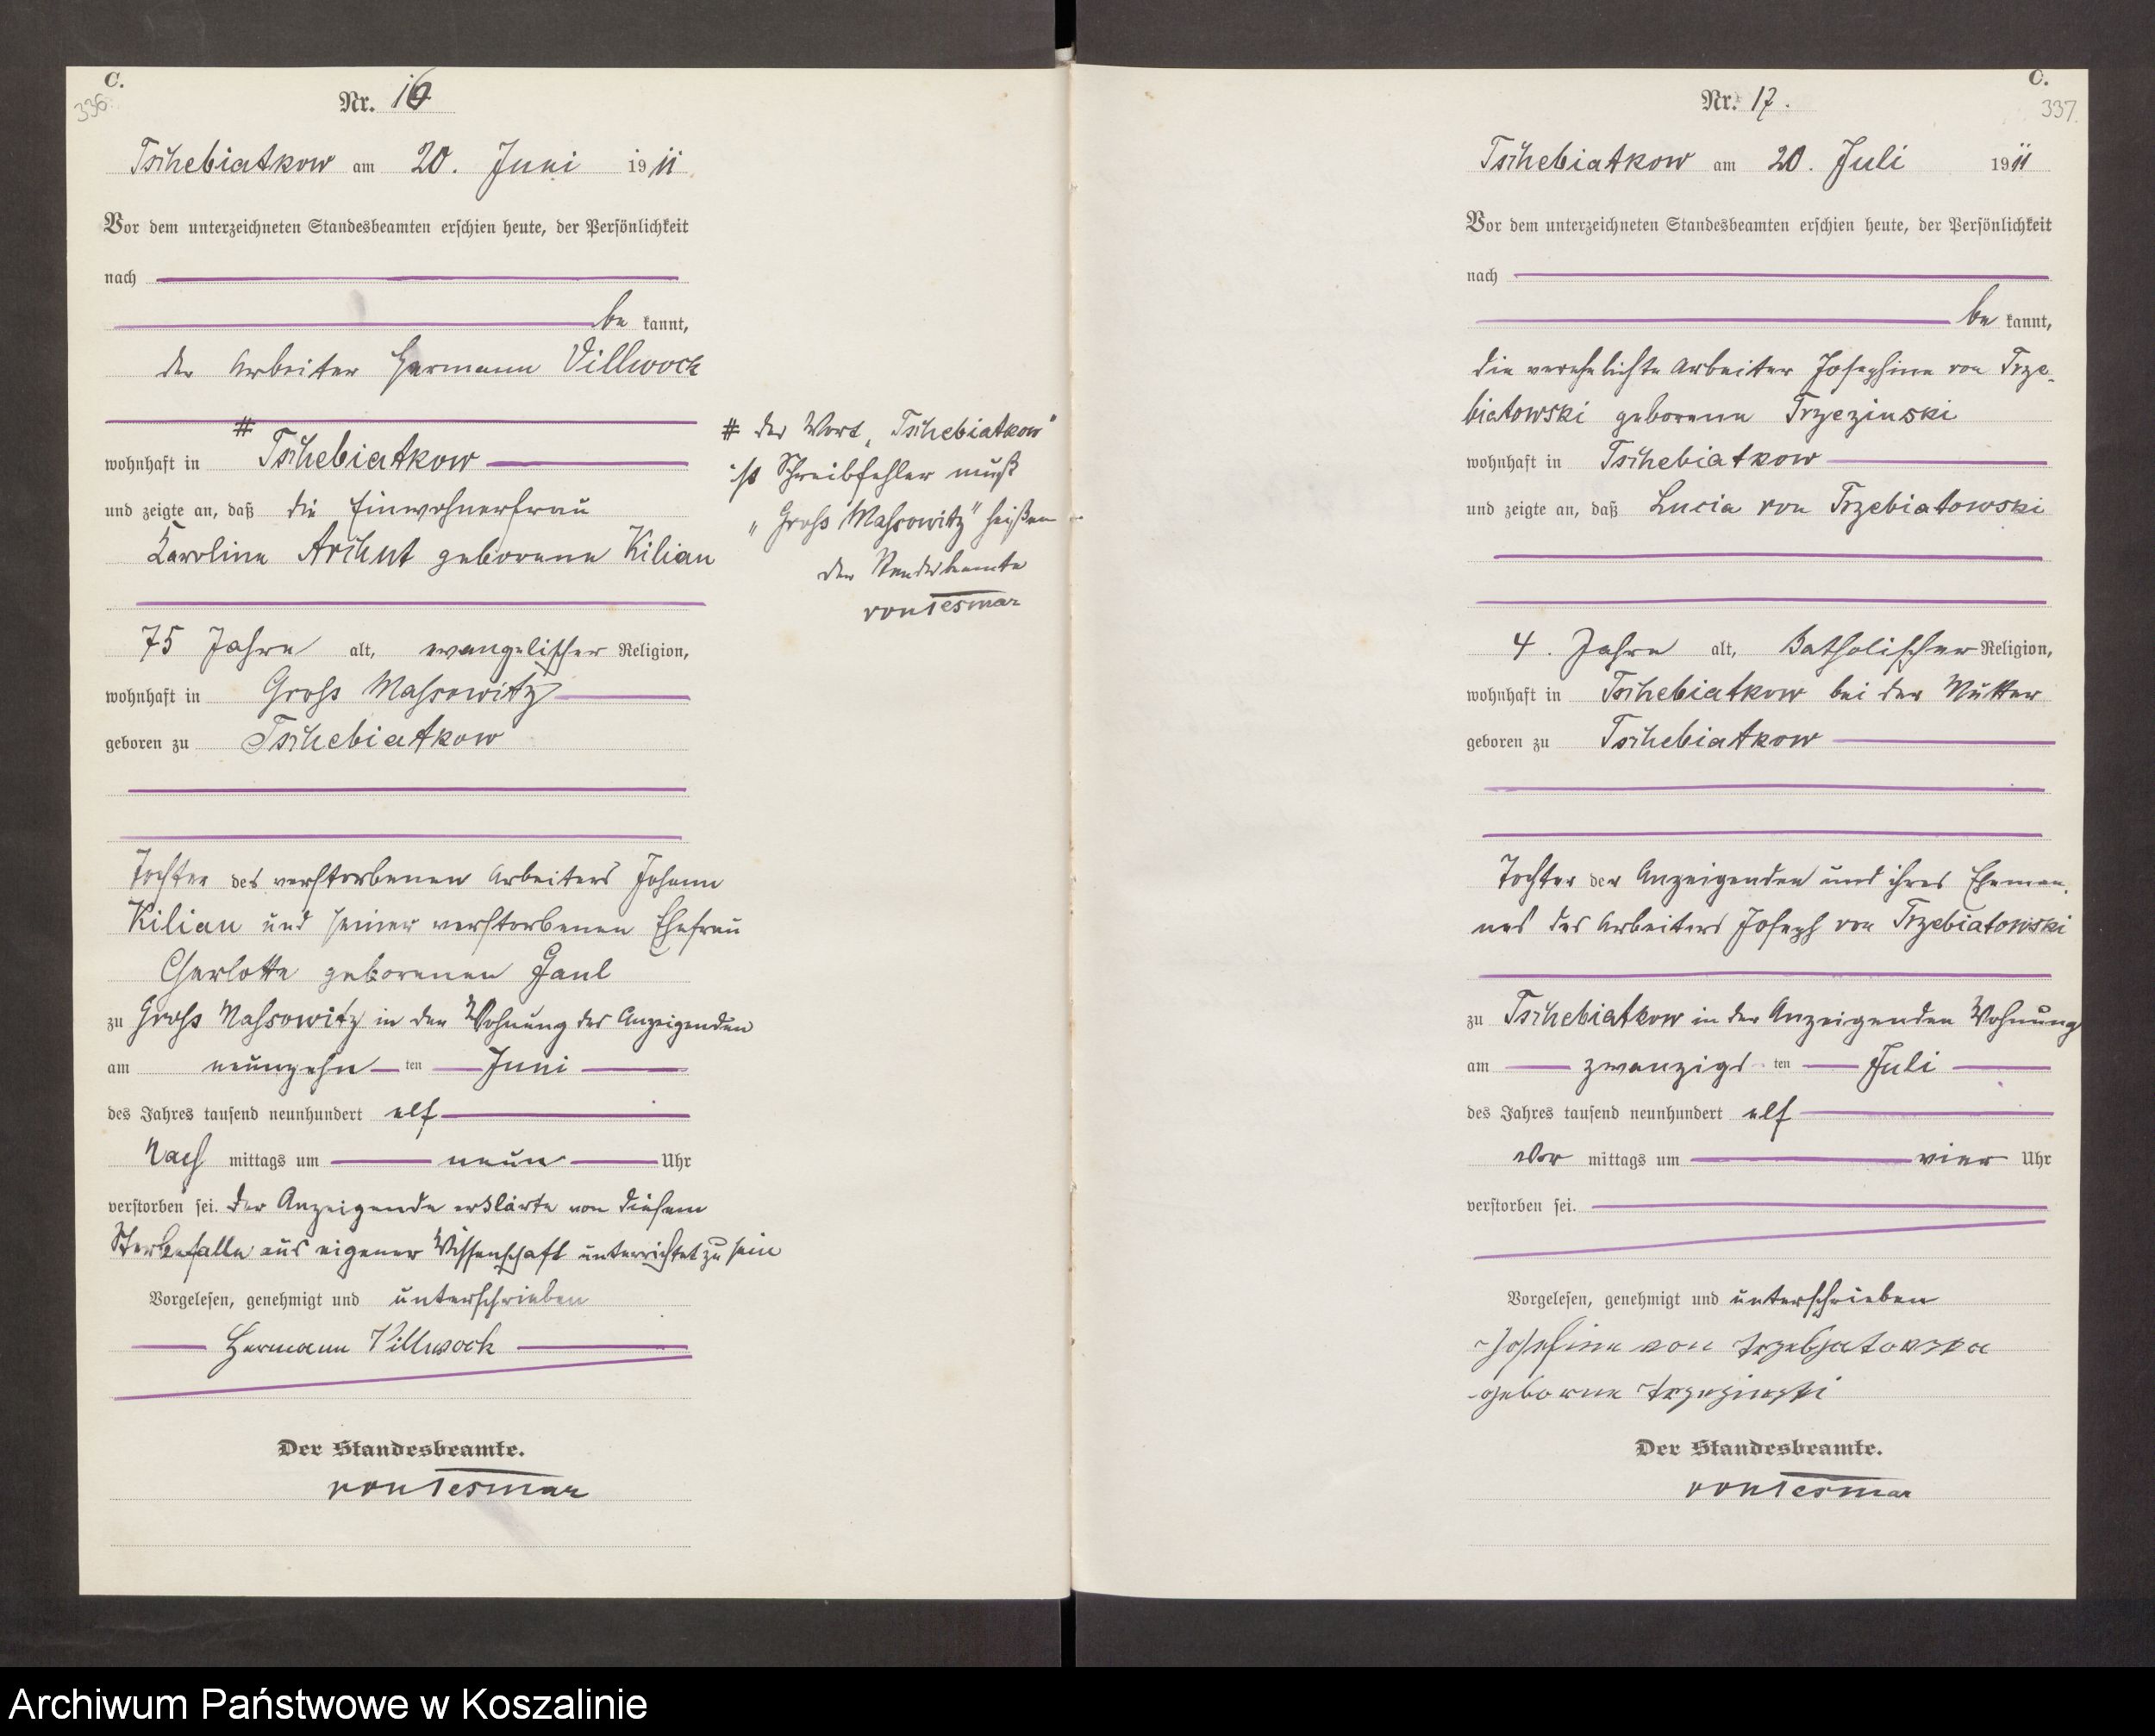 C.
336.
Nr. 16
Tschebiatkow am 20. Juni 1911
Vor dem unterzeichneten Standesbeamten erschien heute, der Persönlichkeit
nach
be kannt,
der Arbeiter Hermann Villwock
wohnhaft in # Tschebiatkow
und zeigte an, daß die Einwohnerfrau
Karoline Archut geborene Kilian
75 Jahre alt, evangelischer Religion,
wohnhaft in Gross Massowitz
geboren zu Tschebiatkow
Tochter des verstorbenen Arbeiters Johann
Kilian und seiner verstorbenen Ehefrau
Charlotte geborenen Gaul
zu Gross Massowitz in der Wohnung des Anzeigenden
am neunzehn ten Juni
des Jahres tausend neunhundert elf
Nach mittags um neun Uhr
verstorben sei. Der Anzeigende erklärte von diesem
Sterbefalle aus eigener Wissenschaft unterrichtet zu sein
Vorgelesen, genehmigt und unterschrieben
Hermann Villwock
Der Standesbeamte.
von Tesmar
# das Wort „Tschebiatkow"
ist Schreibfehler muß
„Gross Massowitz" heißen
der Standesbeamte
von Tesmar
C.
337.
Nr. 17.
Tschebiatkow am 20. Juli 1911
Vor dem unterzeichneten Standesbeamten erschien heute, der Persönlichkeit
nach
be kannt,
die verehelichte Arbeiter Josephine von Trze-
biatowski geborene Trzezinski
wohnhaft in Tschebiatkow
und zeigte an, daß Lucia von Trzebiatowski
4. Jahre alt, katholischer Religion,
wohnhaft in Tschebiatkow bei der Mutter
geboren zu Tschebiatkow
Tochter der Anzeigenden und ihres Eheman-
nes des Arbeiters Joseph von Trzebiatowski
zu Tschebiatkow in der Anzeigenden Wohnung
am zwanzigs ten Juli
des Jahres tausend neunhundert elf
Vor mittags um vier Uhr
verstorben sei.
Vorgelesen, genehmigt und unterschrieben
Josefine von Trzebjatowska
geborne Trzezinski
Der Standesbeamte.
von Tesmar
Archiwum Państwowe w Koszalinie